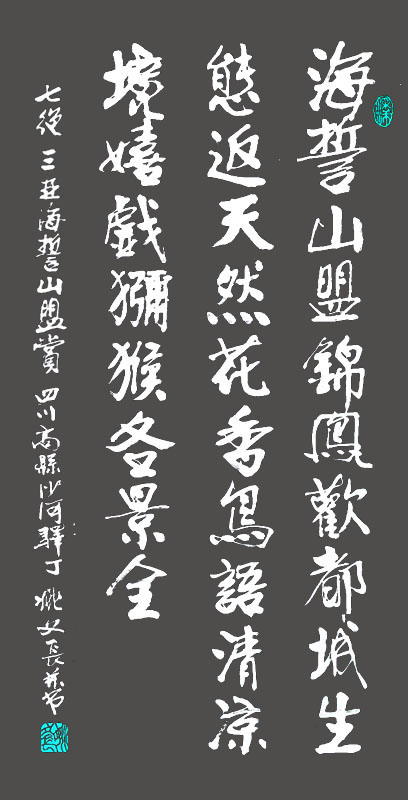 海誓山盟錦鳳歡都城生
態返天然花香鳥語清涼
壞嬉戲獼猴各景全
七絕 三亞海誓山盟賞 四川高縣沙河驛丁